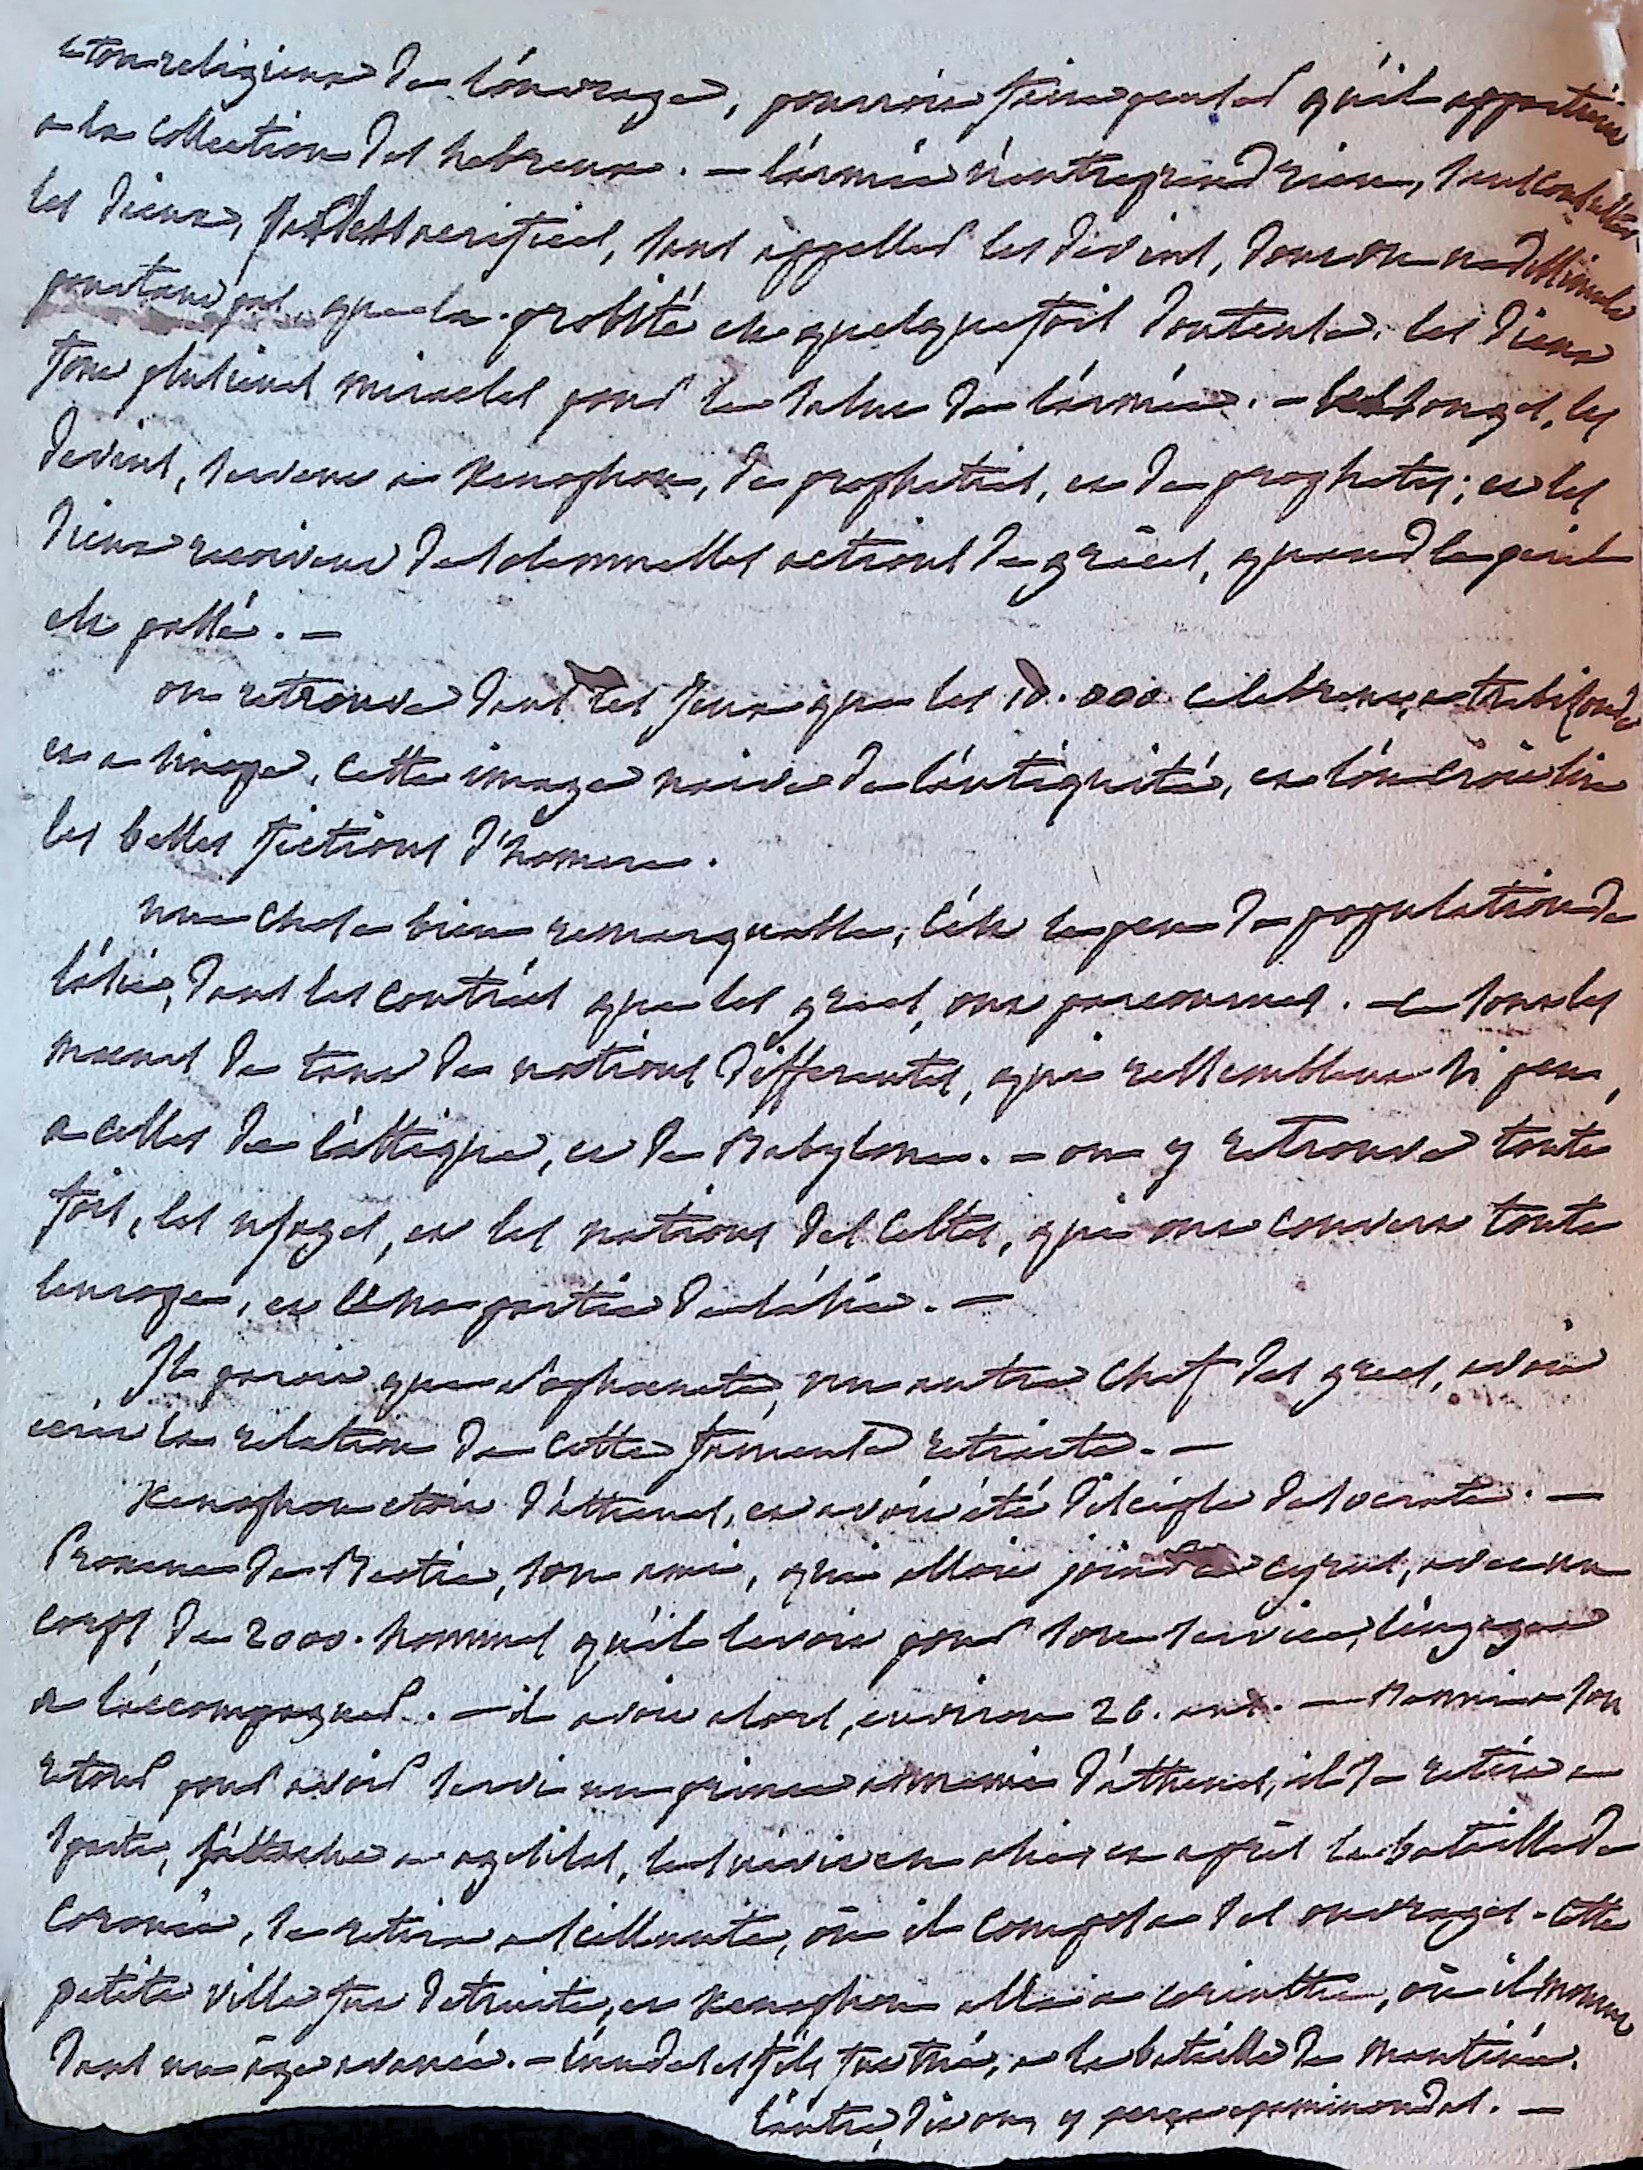 le ton religieux de l'ouvrage, pourroit faire penser qu'il appartient
a la collection des hebreux. – l'armée n'entreprend rien, sans consulter
les dieux, sans sacrifices, sans appeller les devins, dont on ne dissimule
pourtant pas, que la probité est quelquefois douteuse. les dieux
font plusieurs miracles pour le salut de l'armée. – les songes, les
devins, servent a Xenophon, de propheties, et de prophetes; et les
dieux recoivent de solemnelles actions de grâces, quand le peril
est passé. –
on retrouve dans les jeux que les 10.000 celebrent, a trebisonde
et a sinope, cette image naive de l'antiquité, et l'on croit lire
les belles fictions d'homere.
une chose bien remarquable, c'est le peu de population de
l'asie, dans les contrées que les grecs, ont parcourues. – ce sont les
mœurs de tant de nations differentes, qui ressemblent si peu,
a celles de l'attique, et de Babylone. – on y retrouve toute
fois, les usages, et les nations des Celtes, qui ont couvert toute
l'europe, et une partie de l'asie. –
Il paroit que sophenete, un autre chef des grecs, avoit
ecrit la relation de cette fameuse retraite. –
Xenophon etoit d'athenes, et avoit été disciple de socrate. –
Proxene de Beotie, son ami, qui alloit joindre cyrus, avec un
corps de 2000. hommes qu'il levoit pour son service, l'engagea
a l'accompagner. – il avoit alors, environ 26. ans. – Banni a son
retour pour avoir servi un prince ennemi d'athenes, il se retire a
sparte, s'attache a agesilas, le suivit en asie, et après la bataille de
coronée, se retira a scillunte, où il composa des ouvrages. cette
petite ville fut detruite, et Xenophon alla a corinthe, où il mourut
dans un âge avancé. – l'un de ses fils fut tué, a la bataille de mantinée.
l'autre, dit on, y perça epaminondas. –